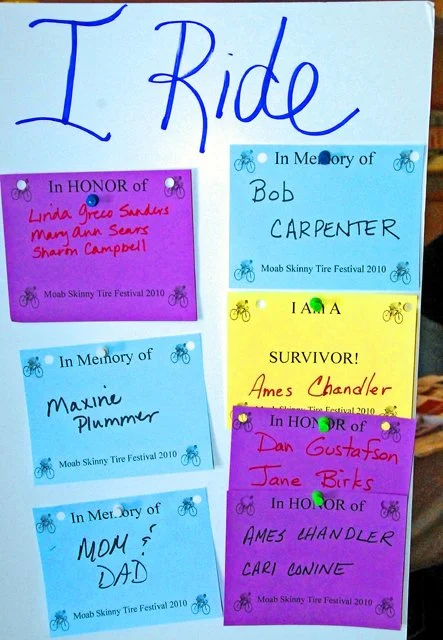 I Ride
In HONOR of
Linda Greco Sanders
Mary Ann Sears
Sharon Campbell
Moab Skinny Tire Festival 2010
In Memory of
Maxine
Plummer
Moab Skinny Tire Festival 2010
In Memory of
MOM &
DAD
Moab Skinny Tire Festival 2010
In Memory of
Bob
CARPENTER
Moab Skinny Tire Festival 2010
I AM A
SURVIVOR!
Ames Chandler
Moab Skinny Tire Festival 2010
In HONOR of
Dan Gustafson
Jane Birks
In HONOR of
AMES CHANDLER
CARI CONINE
Moab Skinny Tire Festival 2010